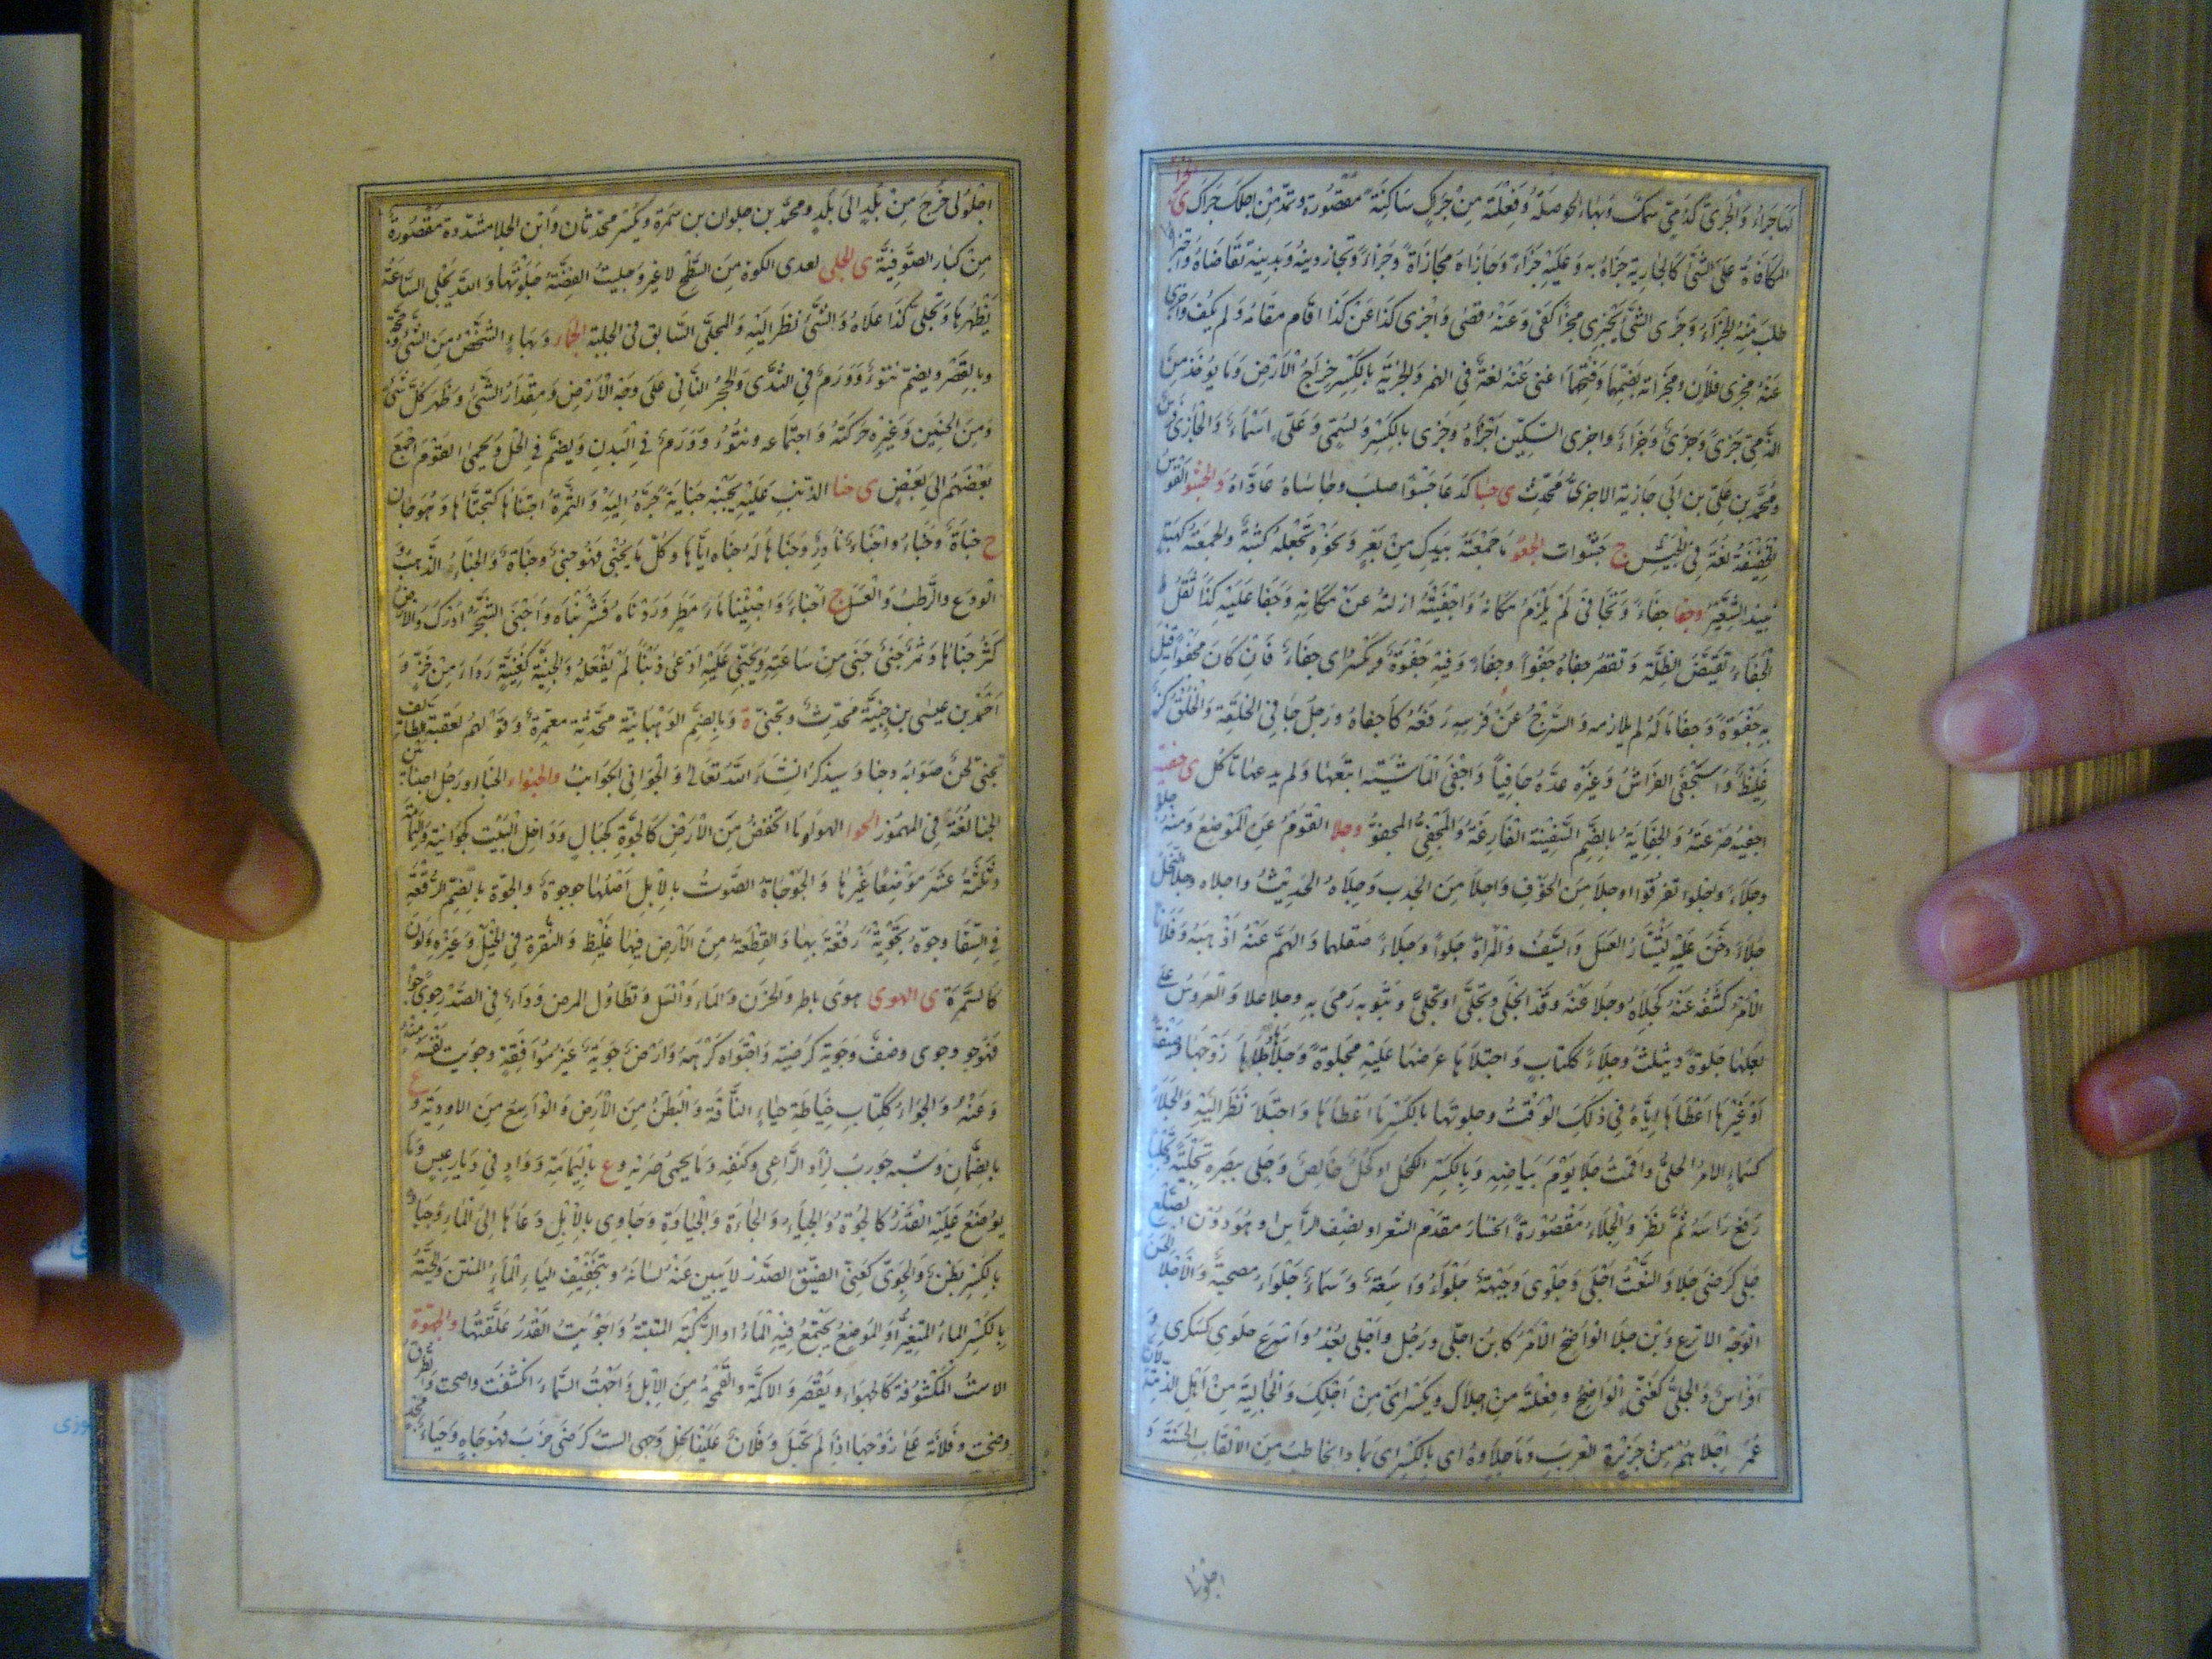 لها جراء والجرى كذمى سمك وبهاء الحوصلة وفعلته من جراك ساكنة مقصورة وتمد من اجلك كجراك ى الجزاء
المكافاة على الشئ كالجازية جزاه به وعليه جزاء وجازاه مجازاة وجزاء وتجاز دينه وبدينه تقاضاه واجتزاه
طلب منه الجزاء وجزى الشئ يجزى جزا كفى وعنه قضى واجزى كذا عن كذا اقام مقامه ولم يكف واجزى
عنه مجزى فلان ومجزاته بضمهما وفتحهما اغنى عنه لغة فى الهمز والجزية بالكسر خراج الارض وما يؤخذ من
الذمى ج جزى وجزى وجزاء واجزى السكين اجزاه وجزى بالكسر وسمى وعلى اسماء والجازى فرس
ومحمد بن على بن ابى جازية الاجزى محدث ى جسا كدعا جسوا صلب وجاساه عاداه والجشو القوس
الخفيفة لغة فى الجشئ ج جشوات الجعو ما جمعته بيدك من بعر ونحوه تجعله كثبة والجعة كهبة
نبيذ الشعير وجفا جفاء وتجافى لم يلزم مكانه واجفيته ازلته عن مكانه وجفا عليه كذا ثقل و
الجفاء نقيض الصلة ويقصر جفاه جفوا وجفاء وفيه جفوة ويكسر اى جفاء فان كان مجفوا قيل
به جفوة وجفا ماله لم يلازمه والسرج عن فرسه رفعه كاجفاه ورجل جافى الخلقة والخلق كز
غليظ واستجفى الفراش وغيره عده جافيا واجفى الماشية اتعبها ولم يدعها تاكل ى جفيه
اجفيه صرعته والجفاية بالضم السفينة الفارغة والمجفى المجفو وجلا القوم عن الموضع ومنه جلوا
وجلاء واجلوا تفرقوا او جلا من الخوف واجلا من الجدب وجلاه الجدب واجلاه وجلا النحل
جلاء دخن عليها ليشتار العسل والسيف والمراة جلوا وجلاء صقلهما والهم عنه اذهبه وفلانا
الامر كشفه عنه كجلاه وجلا عنه وقد انجلى وتجلى او تجلى وبثوبه رمى به وجلا علا والعروس على
بعلها جلوة ويثلث وجلاء ككتاب واجتلاها عرضها عليه مجلوة وجلاها زوجها وصيفة
او غيرها اعطاها اياه فى ذلك الوقت وجلوتها بالكسر ما اعطاها واجتلاه نظر اليه والجلاء
كسماء الامر الجلى واقمت جلا يوم بياضه وبالكسر الكحل او كحل خاص وجلى ببصره تجلية
رفع راسه ثم نظر والجلاء مقصورة انحسار مقدم الشعر او نصف الراس او هو دون الصلع
جلى كرضى جلا والنعت اجلى وجلوى وجبهة جلواء واسعة وسماء جلواء مصحية والاجلى الحسن
الوجه الانزع وابن جلا الواضح الامر كابن اجلى ورجل واجلى يعد واسرع جلوى كسكرى و
افراس والجلى كغنى الواضح وفعلته من اجلاك ويكسر اى من اجلك والجالية من اهل الذمة لان
عمر اجلاهم من جزيرة العرب وما جلاؤه اى بالكسر اى بماذا يخاطب من الالقاب الحسنة و
اجلولى
اجلولى خرج من بلد الى بلد ومحمد بن جلوان بن سمرة ويكسر محدثان وابن الجلا مشددة مقصورة
من كبار الصوفية ى الجلى لعدى الكوة من السطح لا غير وجليت الفضة جلوتها والله يجلى الساعة
يظهرها وتجلى كذا علاه والشئ نظر اليه والمجلى السابق فى الحلبة الجماء وبهاء الشخص من الشئ وحجمه
وبالقصر ويضم نتوء وورم فى الثدى والحجر الناتى على وجه الارض ومقدار الشئ وظهر كل شئ
ومن الجنين وغيره حركته واجتماعه ونتوء وورم فى البدن ويضم فى الكل وتجمى القوم اجتمع
بعضهم الى بعض ى جنا الذنب عليه يجنيه جناية جره اليه والثمرة اجتناها كتجناها وهو جان
ج جناة وجناء واجناء نادر وجناها له جناه اياها وكل ما يجنى فهو جنى وجناة والجناء الذهب و
الودع والرطب والعسل ج اجناء واجتنينا ماء مطر وردناه فشربناه واجنى الشجر ادرك والارض
كثر جناها وثمر جنى جنى من ساعته وتجنى عليه ادعى ذنبا لم يفعله والجنية كغنية رداء من خز و
احمد بن عيسى بن جنية محدث وتجنى ة وبالضم الوهبانية محدثة معمرة وقولهم لعقبة الطائف
تجنى لحن صوابه دجنا وسيذكر انشاء الله تعالى والجوانى الجوانب والجنواء الجنا او رجل اجنا بين
الجنا لغة فى المهموز الجوا الهواء وما انخفض من الارض كالجوة كجبال وداخل البيت كجوانيه واليمامة
وثلثة عشر موضعا غيرها والجوجاة الصوت بالابل اصلها جوجوة والجوة بالضم الرقعة
فى السقا وجوه تجوية رقعه بها والقطعة من الارض فيها غلظ والنقرة فى الجبل وغيره ولون
كالسمرة ى الهوى هوى باطن والحزن والماء والسل وتطاول المرض وداء فى الصدر جوى جوا
فهو جو وجوى وصف وجوية كرضيه واجتواه كرهه وارض جوية غير موافقة وجويت نفسه منه
وعنه والجواء ككتاب خياطة حياء الناقة والبطن من الارض والواسع من الاودية وع
بالضمان وشبه جورب لزاد الراعى وكنفه وما يحمى ضريه وع باليمامة وواد فى ديار عبس وما
يوضع عليه القدر كالجوة والجياء والجاءة والجيادة وجاوى بالابل دعاها الى الماء وجياوة
بالكسر بطن والجوى كغنى الضيق الصدر لا يبين عنه لسانه وبتخفيف الياء الماء المنتن والجية
بالكسر الماء المتغير او الموضع يجتمع فيه الماء او الركية المنتنة واجويت القدر علقتها والجهوة
الاست المكشوفة كالجهواء ويقصر والاكمة والقحمة من الابل واجهت السماء انكشفت واصحت والطرق
وضحت وفلانة على زوجها اذا لم تحبل وفلان علينا بخل وجهى البيت كرضى خرب فهو جاه وخباء مجه